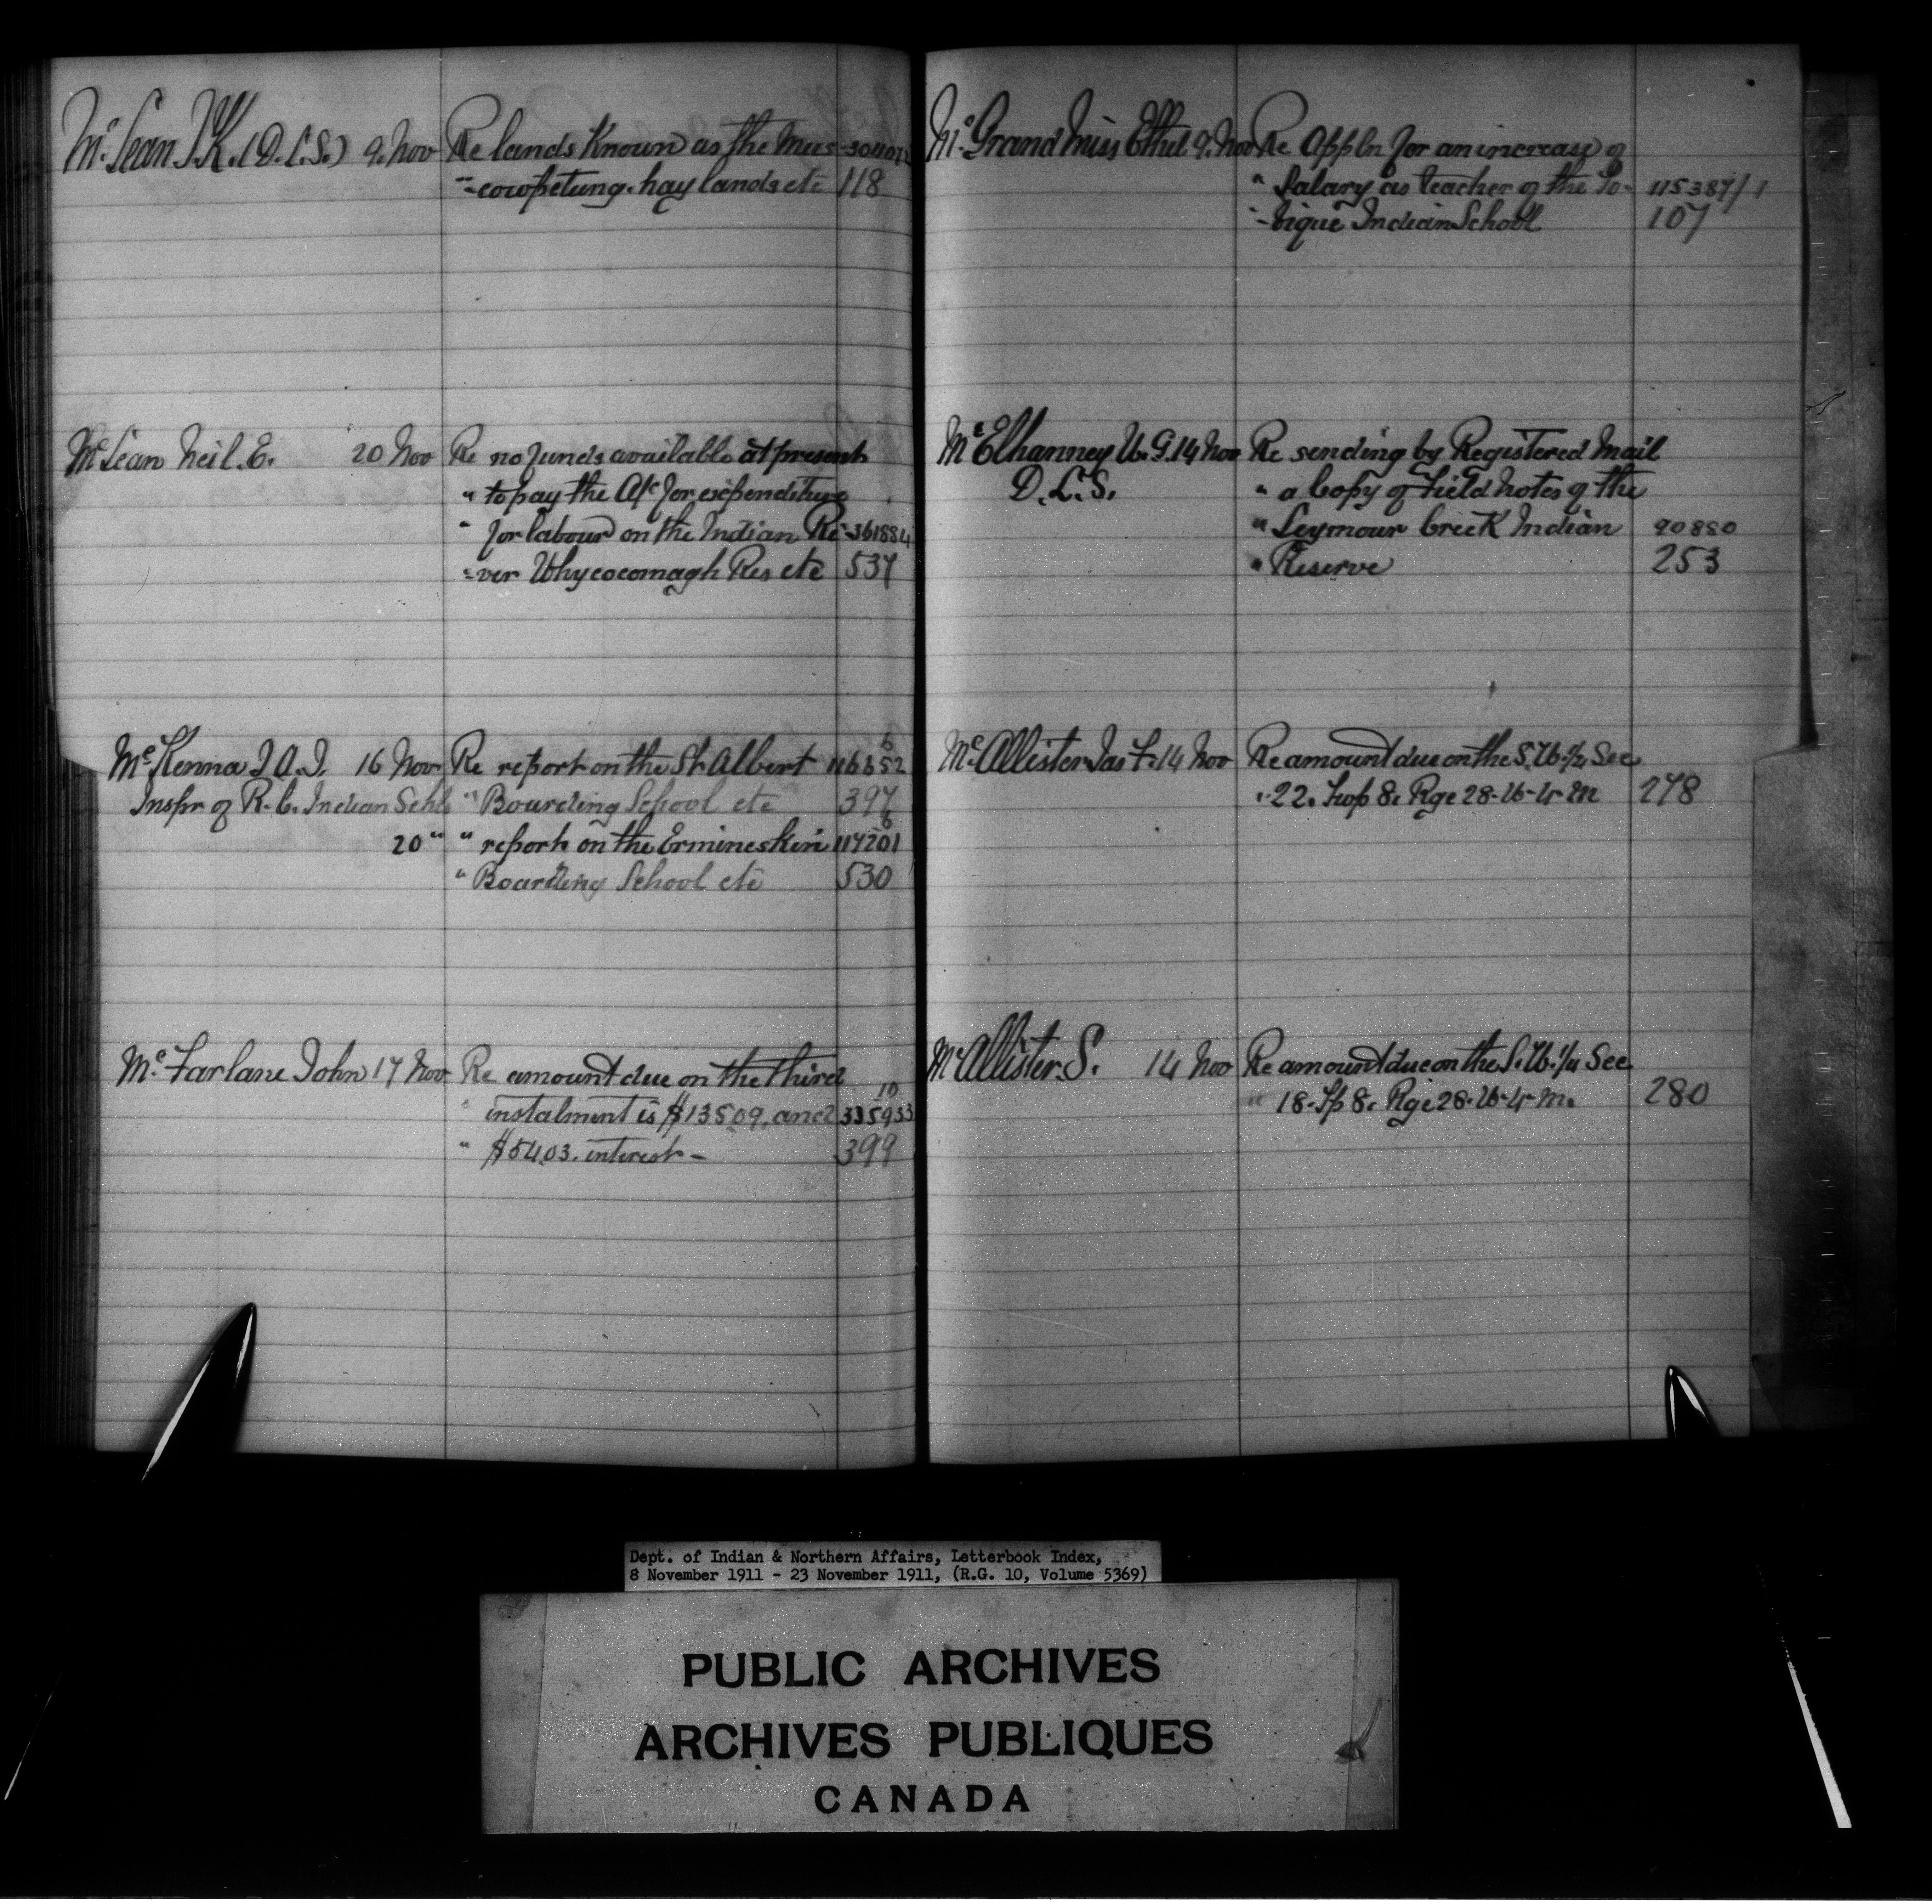 Mc Lean J.K. (D.L.S.) 9. Nov Re lands Known as the Mus
-cowpetung. hay lands etc 118
Mc Lean Neil. E. 20 Nov Re no funds available at present
" to pay the A/c for expenditure
" for labour on the Indian Re- 361884
-ver Whycocomagh Res etc 537
Mc Kenna J. A. J. 16 Nov Re report on the St. Albert
Inspr of R. C. Indian Schls " Boarding School etc 397
20 " " report on the Ermineskin
" Boarding School etc 530
Mc Farlane John 17 Nov Re amount due on the third
" instalment is $135.09. and 335933 10
" $54.03. interest - 399
Mc Grand Miss Ethel 9. Nov Re Appln for an increase of
" Salary as teacher of the To-
-bique Indian School 107
Mc Elhanney W. G. 14 Nov Re sending by Registered Mail
D. L. S. " a Copy of Field Notes of the
" Seymour Creek Indian 90880
" Reserve 253
Mc Allister Jas F. 14 Nov Re amount due on the S. W. 1/4 Sec
" 22. Twp 8. Rge 28. W. 4. M 278
Mc Allister. S. 14 Nov Re amount due on the S. W. 1/4 Sec
" 18. Tp 8. Rge 28. W. 4. M. 280
Dept. of Indian & Northern Affairs, Letterbook Index,
8 November 1911 - 23 November 1911, (R.G. 10, Volume 5369)
PUBLIC ARCHIVES
ARCHIVES PUBLIQUES
CANADA